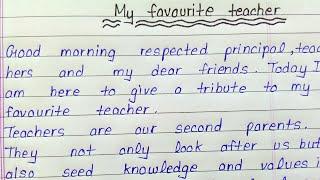 My favourite teacher
Good morning respected principal, teac
hers and my dear friends. Today I
am here to give a tribute to my
favourite teacher.
Teachers are our second parents.
They not only look after us but
also seed knowledge and values i